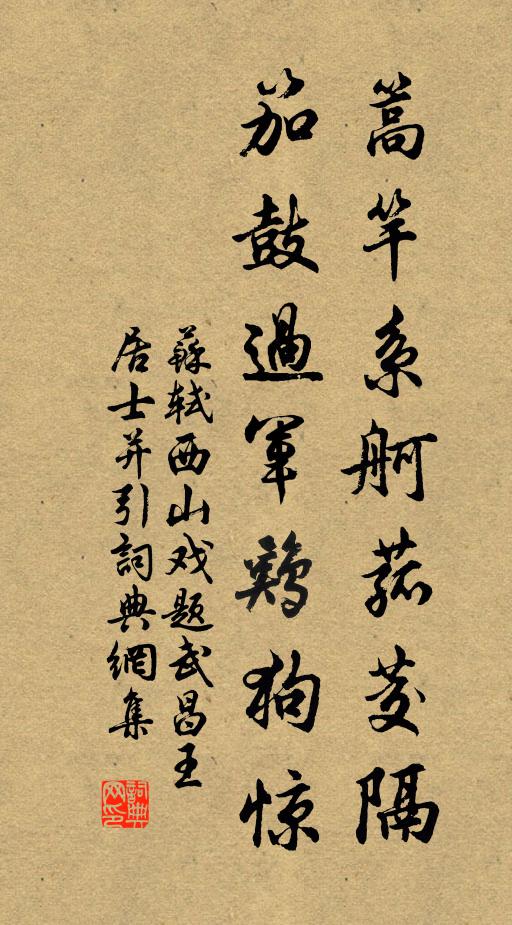 蒿竿系舸菰茭隔
笳鼓過軍鷄狗惊
蘇軾西山戏题武昌王
居士并引詞典網集
詞典
网印